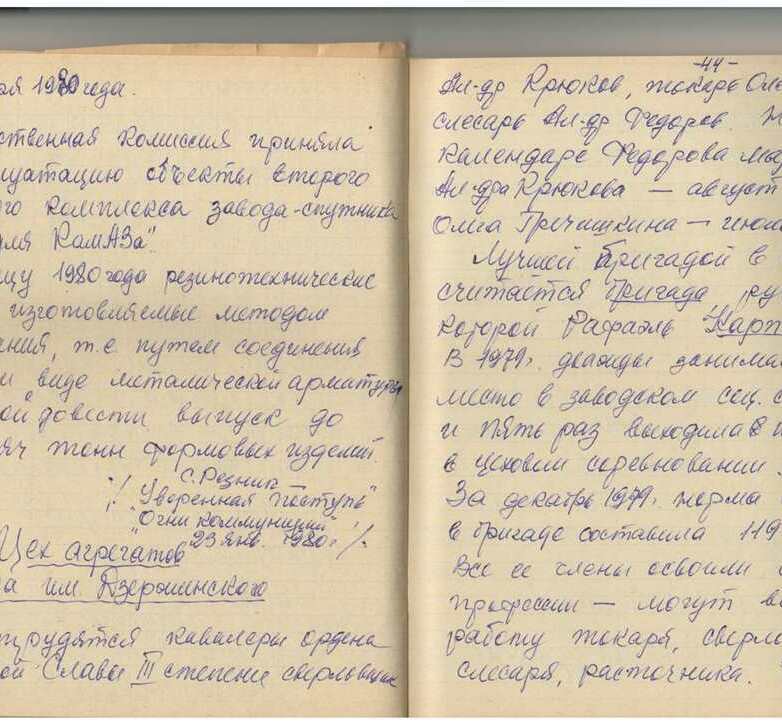 ря 1980 года.
ственная комиссия приняла
луатацию объекты второго
го комплекса завода-спутника
для КамАЗа".
цу 1980 года резинотехнические
изготовляемые методом
ния, т.е. путем соединения
м виде металической арматуры
ой довести выпуск до
яч тонн формовых изделий.
С. Резник
"Уверенная поступь"
"Огни коммуниции"
23 янв. 1980 г.
Цех агрегатов
а им. Дзержинского
трудятся кавалеры ордена
ой Славы III степени сверловщик
-44-
Ал-др Крюков, токарь Оле
слесарь Ал-др Федоров. Н
календаре Федорова ма
Ал-дра Крюкова — август
Олега Пречишкина — июн
Лучшей бригадой в
считается бригада ру
которой Рафаэль Карп
В 1979 г. дважды занима
место в заводском соц. с
и пять раз выходила
в цеховом соревновании.
За декабрь 1979 г. норма
в бригаде составила 119
Все ее члены освоили
профессии — могут в
работу токаря, сверл
слесаря, расточника.